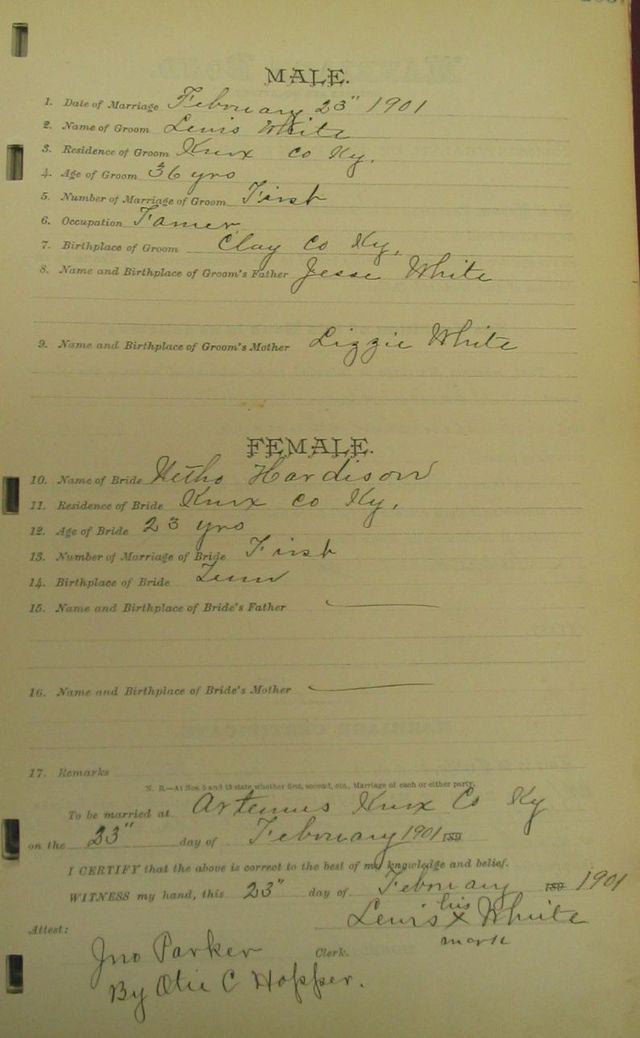 MALE.
1. Date of Marriage February 23" 1901
2. Name of Groom Lewis White
3. Residence of Groom Knox Co Ky.
4. Age of Groom 36 yrs
5. Number of Marriage of Groom First
6. Occupation Famer
7. Birthplace of Groom Clay Co Ky.
8. Name and Birthplace of Groom's Father Jesse White
9. Name and Birthplace of Groom's Mother Lizzie White
FEMALE.
10. Name of Bride Hardison
11. Residence of Bride Knox Co Ky.
12. Age of Bride 23 yrs
13. Number of Marriage of Bride First
14. Birthplace of Bride Tenn
15. Name and Birthplace of Bride's Father
16. Name and Birthplace of Bride's Mother
17. Remarks
N. B.—At Nos. 5 and 13 state whether first, second, etc., Marriage of each or either party.
To be married at Artemus Knox Co Ky
on the 23" day of February 1901 189
I CERTIFY that the above is correct to the best of my knowledge and belief.
WITNESS my hand, this 23" day of February 189 1901
his
Lewis x White
mark
Attest:
Jno Parker Clerk.
By Otie C Hopper.